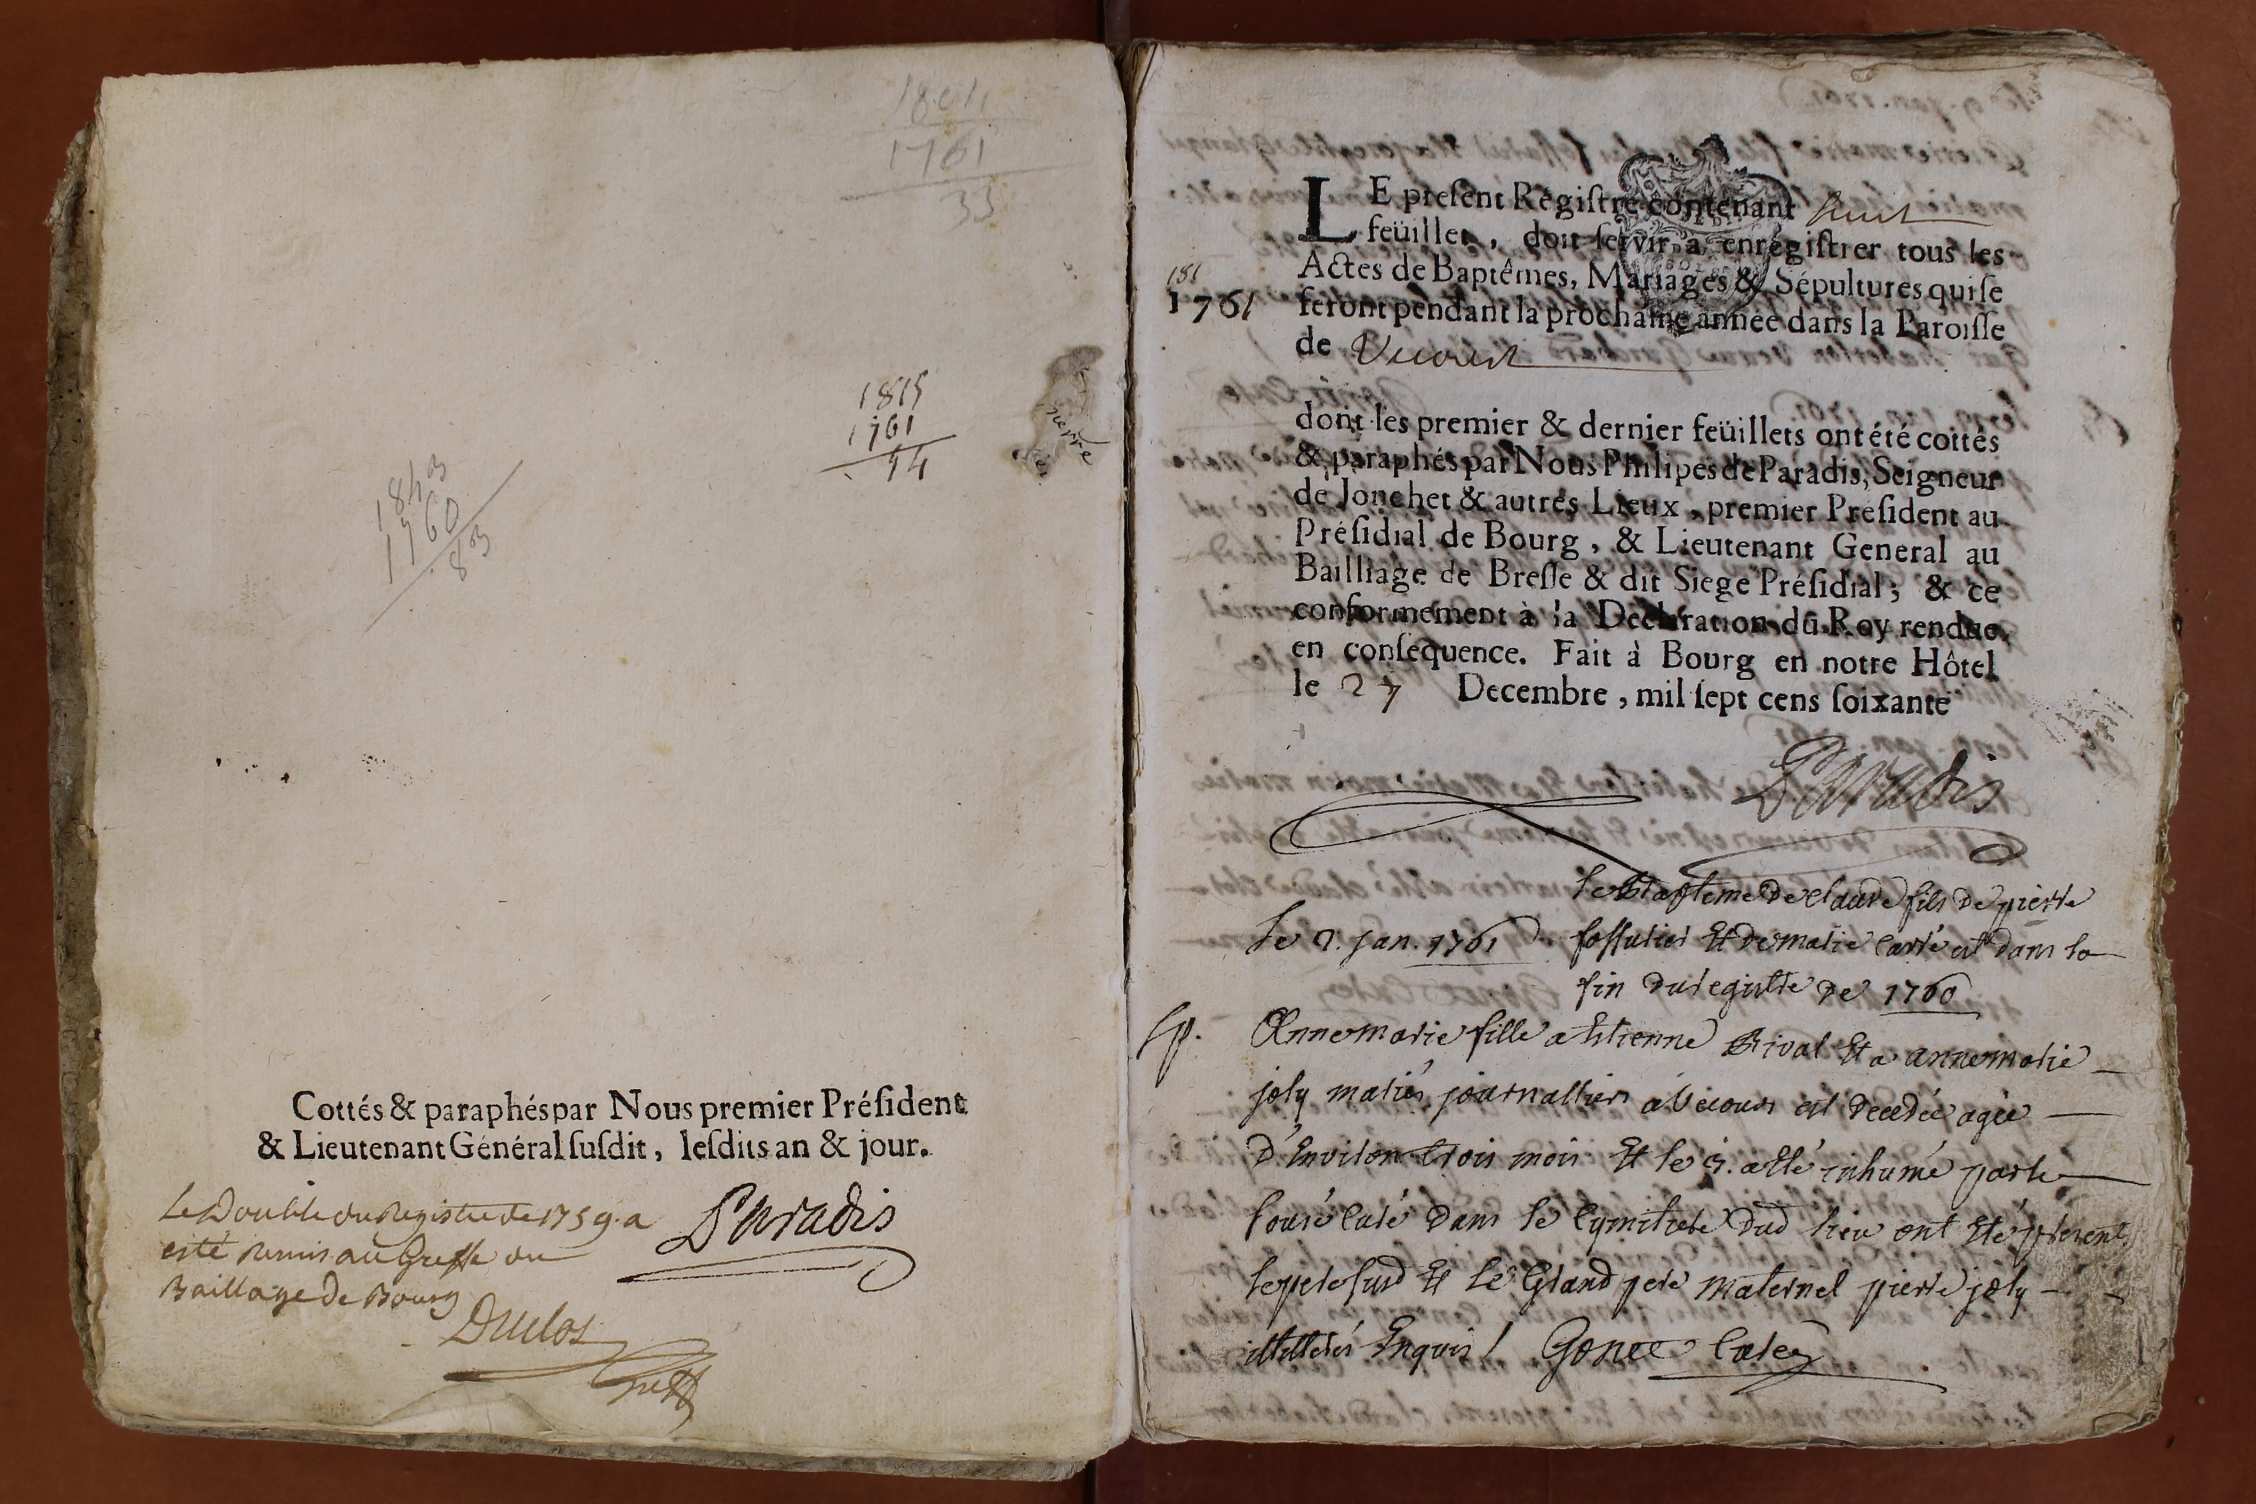 1801
1761
33
1815
1761
54
1843
1760
83
pierre
Cottés & paraphés par Nous premier Préſident
& Lieutenant Général ſuſdit, leſdits an & jour.
Le Double du Registre de 1759. a
esté remis au Greffe du
Baillage de Bourg
Paradis
Duclos
Greff
LE preſent Régiſtre contenant huit
feüillet, doit ſervir à enrégiſtrer tous les
Actes de Baptêmes, Mariages & Sépultures qui ſe
feront pendant la prochaine année dans la Paroiſſe
de Vecourt
181
1761
dont les premier & dernier feüillets ont été cottés
& paraphés par Nous Philipes de Paradis, Seigneur
de Jonchet & autres Lieux, premier Préſident au
Préſidial de Bourg, & Lieutenant General au
Bailliage de Breſſe & dit Siege Préſidial; & ce
conformement à la Déclaration du Roy rendue
en conſéquence. Fait à Bourg en notre Hôtel
le 27 Decembre, mil ſept cens ſoixante
Paradis
le Bapteme de claude fils de pierre
le 2. jan. 1761 fossurier Et de marie carré est dans la
fin du registre de 1760
Sp. Annemarie fille a Estienne Rival Et a annemarie
joly mariés journalliers a Vecours est decedée agée
d'Environ trois mois Et le 3. a Eté inhumé par le
souse Curé dans le Cymitiere dud lieu ont Eté presents
le pere susd Et le Grand pere maternel pierre joly
illitterés Enquis / Gonet Curé